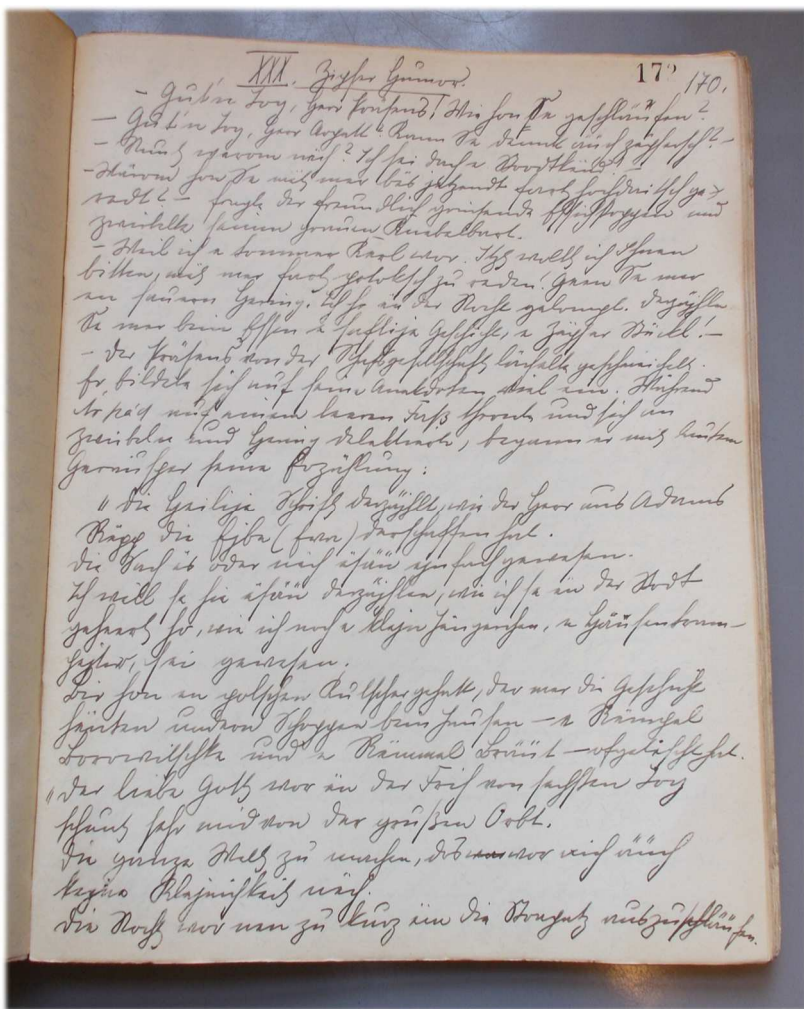 XXX. Zipser Humor. 172 170.
– Gut'n Tog, Herr Präsens! Wie hon Se geschläufen?
– Gut'n Tog, Herr Arpatt! Kann Se denn auch zepsersch? –
– Nu warom nich? Ich sei doch e Stodtkend –
– Warom hon Se mit mer bis jetzendt fart hochdaitsch ge-
redt? – fragte der freundlich grinsende und
zwirbelte seinen grauen Knebelbart.
– Weil ich e tommer Karl wor. Itzt wollt ich Ihnen
bitten, mit mer fart potoksch zu reden. Geen Se mer
en sauern Hering. Ich ho en der Nocht gelompt. Derzähln
Se mer beim Essen e saftige Geschicht, e Zepser Stückl! –
– Der Präsens von der lächelte geschmeichelt.
Er bildete sich auf seine Anekdoten viel ein. Während
Árpád auf einem leeren Faß thronte und sich an
Zwiebeln und Hering delektierte, begann er mit lautem
Geräusper seine Erzählung:
"Die Heilige Schrift derzählt, wie der Herr aus Adams
Repp die Ejba (Eva) derschaffen hat.
Die Sach is oder nich asäu ejnfach gewesen.
Ich will se hie asäu derzählen, wie ich se en der Stodt
geheert ho, wie ich noch e klejn Jüngerchen, e
sei gewesen.
Bir hon en polschen Kutscher gehatt, der mer die Geschicht
hinten undern Schoppen beim – e Stempel
Borowitschke und e Kemmel Bräut – ofgetischt hat.
"Der liebe Gott wor än der Frih von sechsten Tog
schunt sehr mid von der grußen Orbt.
Die ganze Welt zu machen, dos wor nich äuch
kejne Klejnichkeit nich.
Die Nocht wor nen zu kurz em die auszuschläufen.